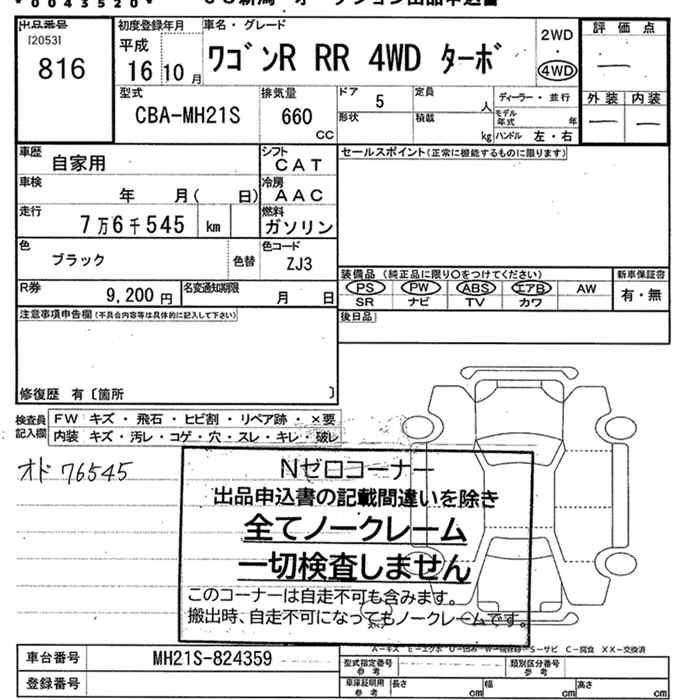 *0043520*
出品番号
[2053]
816
初度登録年月
平成
16 10月
車名・グレード
ワゴンR RR 4WD ターボ
2WD
・
4WD
評価点
―
外装 内装
― ―
型式
CBA-MH21S
排気量
660
cc
ドア 5
定員
人
形状
積載
kg
ディーラー・並行
モデル年式 年
ハンドル 左・右
車歴
自家用
シフト
CAT
セールスポイント(正常に機能するものに限ります)
車検
年 月( 日)
冷房
AAC
走行
7万6千545 km
燃料
ガソリン
色
ブラック
色替
色コード
ZJ3
装備品(純正品に限り○をつけてください)
PS PW ABS エアB AW
SR ナビ TV カワ
新車保証書
有・無
R券
9,200円
名変通知期限
月 日
後日品
注意事項申告欄(不具合内容等は具体的に記入して下さい)
修復歴 有〔箇所 〕
検査員記入欄
FW キズ・飛石・ヒビ割・リペア跡・×要
内装 キズ・汚レ・コゲ・穴・スレ・キレ・破レ
オド 76545
Nゼロコーナー
出品申込書の記載間違いを除き
全てノークレーム
一切検査しません
このコーナーは自走不可も含みます。
搬出時、自走不可になってもノークレームです。
車台番号
MH21S-824359
登録番号
型式指定番号 参考
類別区分番号 参考
車庫証明用 参考
長さ cm
幅 cm
高さ cm